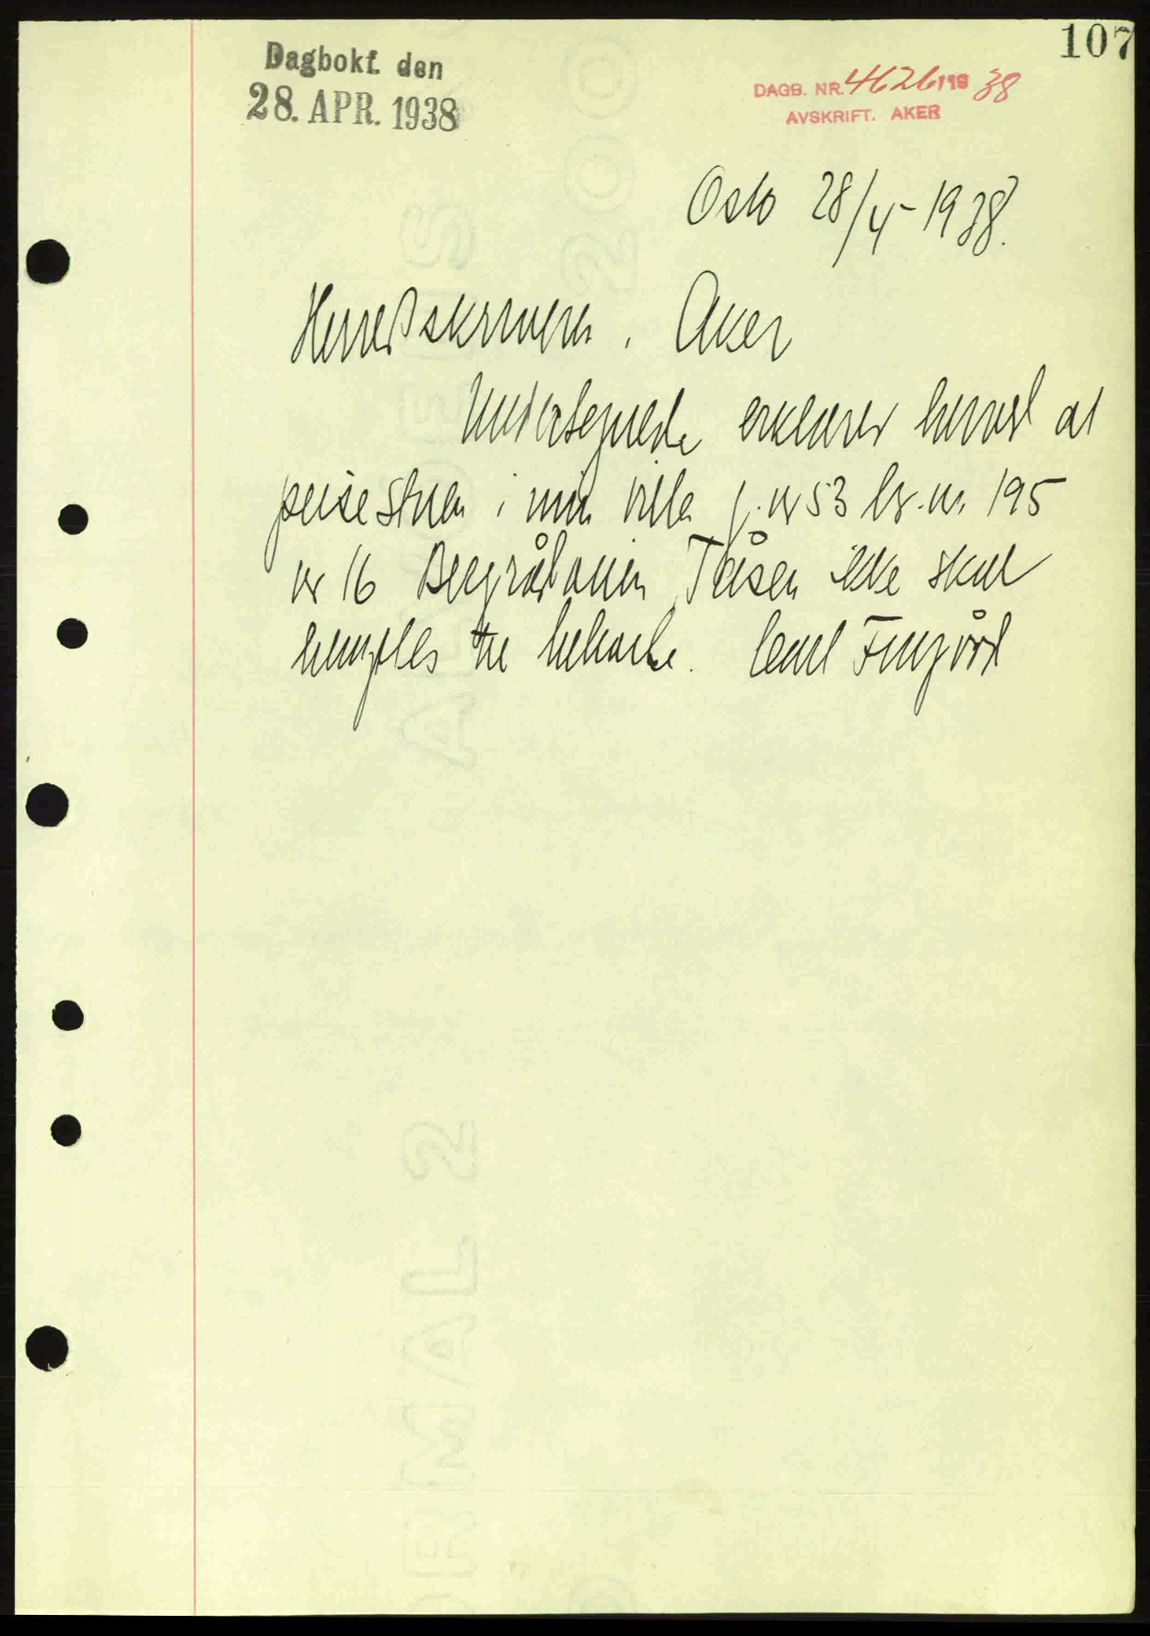 107
Dagbokf. den
28. APR. 1938
DAGB. NR. 4626 19 38
AVSKRIFT. AKER
Oslo 28/4-1938.
Herredsskriveren i Aker
Undertegnede erklærer herved at
peisestuen i min villa g.nr 53 br.nr. 195
nr 16 Bergrådveien Tåsen ikke skal
benyttes til beboelse. Carl